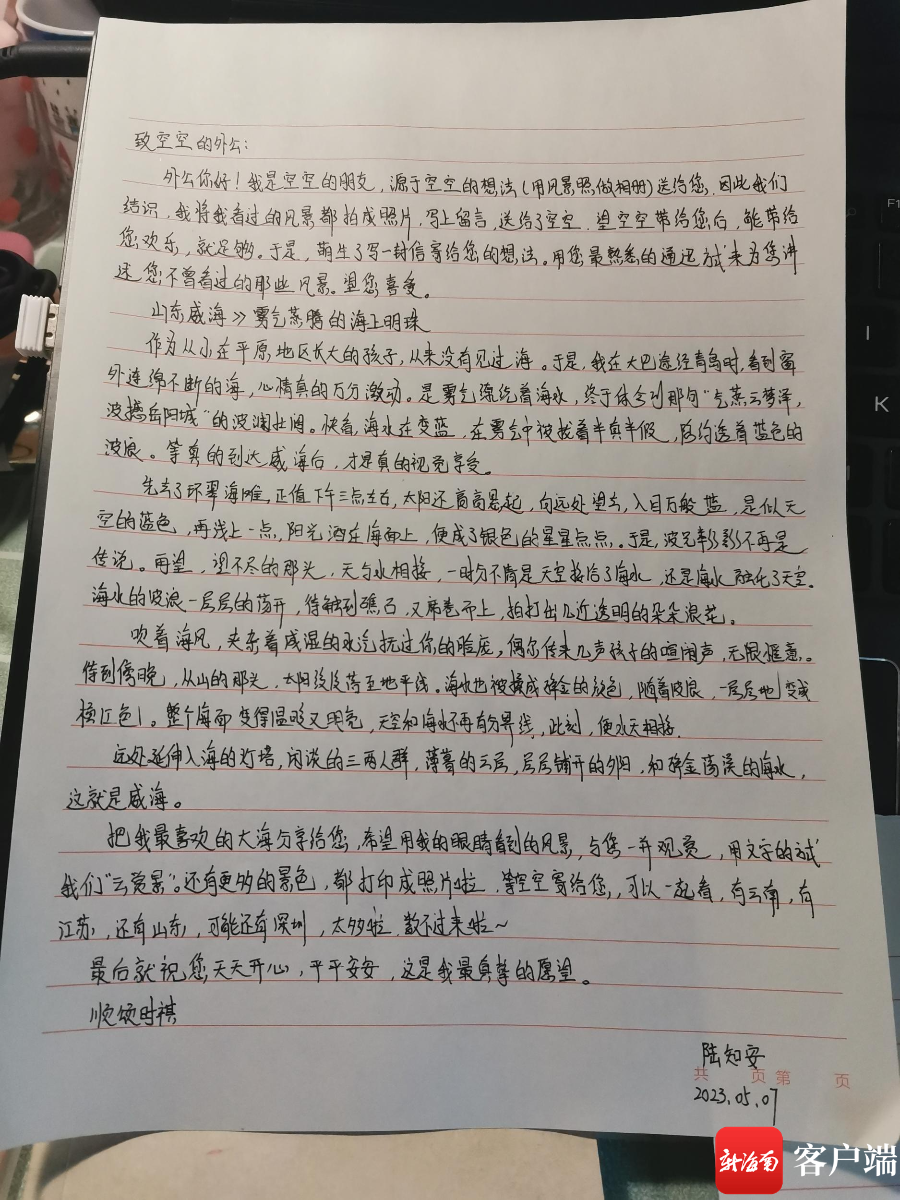 致空空的外公：
外公你好！我是空空的朋友，源于空空的想法（用风景照做相册）送给您，因此我们
结识，我将我看过的风景都拍成照片，写上留言，送给了空空，望空空带给您后，能带给
您欢乐，就足够。于是，萌生了写一封信寄给您的想法。用您最熟悉的通迅方式来为您讲
述您不曾看过的那些风景。望您喜爱。
山东威海》雾气蒸腾的海上明珠
作为从小在平原地区长大的孩子，从来没有见过海。于是，我在大巴途经青岛时，看到窗
外连绵不断的海，心情真的万分激动。是雾气缭绕着海水，终于体会到那句“气蒸云梦泽，
波撼岳阳城”的波澜壮阔。快看，海水在变蓝，在雾气中被拢着半真半假，隐约透着蓝色的
波浪。等真的到达威海后，才是真的视觉享受。
先去了环翠海滩，正值下午三点左右，太阳还高高悬起，向远处望去，入目万般蓝，是似天
空的蓝色，再浅上一点，阳光洒在海面上，便成了银色的星星点点。于是，波光粼粼不再是
传说。再望，望不尽的那头，天与水相接，一时分不清是天空接住了海水，还是海水融化了天空。
海水的波浪一层层的荡开，待触到礁石，又席卷而上，拍打出几近透明的朵朵浪花。
吹着海风，夹杂着咸湿的水汽抚过你的脸庞，偶尔传来几声孩子的喧闹声，无限惬意。
待到傍晚，从山的那头，太阳缓缓落至地平线。海水也被揉成碎金的颜色，随着波浪，一层层地变成
橙红色。整个海面变得温暖又明亮，天空和海水不再有分界线，此刻，便水天相接。
远处延伸入海的灯塔，闲谈的三两人群，薄暮的云层，层层铺开的夕阳，和碎金荡漾的海水，
这就是威海。
把我最喜欢的大海分享给您，希望用我的眼睛看到的风景，与您一并观赏，用文字的方式
我们“云赏景”。还有更多的景色，都打印成照片啦，等空空寄给您，可以一起看，有云南，有
江苏，还有山东，可能还有深圳，太多啦，数不过来啦~
最后就祝您天天开心，平平安安，这是我最真挚的愿望。
顺颂时祺
陆知安
共 页 第 页
2023.05.07
新海南 客户端
F1
I
K